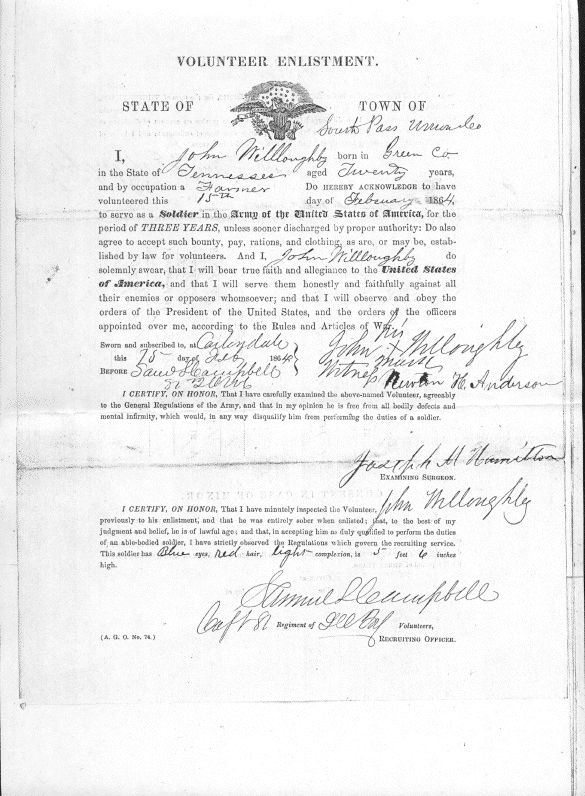 VOLUNTEER ENLISTMENT.
STATE OF TOWN OF
South Pass Union Co
I, John Willoughby born in Green Co
in the State of Tennessee aged Twenty years,
and by occupation a Farmer Do HEREBY ACKNOWLEDGE to have
volunteered this 15th day of February 1864,
to serve as a Soldier in the Army of the United States of America, for the
period of THREE YEARS, unless sooner discharged by proper authority: Do also
agree to accept such bounty, pay, rations, and clothing, as are, or may be, estab-
lished by law for volunteers. And I, John Willoughby do
solemnly swear, that I will bear true faith and allegiance to the United States
of America, and that I will serve them honestly and faithfully against all
their enemies or opposers whomsoever; and that I will observe and obey the
orders of the President of the United States, and the orders of the officers
appointed over me, according to the Rules and Articles of War.
his
Sworn and subscribed to, at Carbondale John X Willoughby
this 15 day of Feb 1864 mark
BEFORE Saml L Campbell Witness Newton H. Anderson
I CERTIFY, ON HONOR, That I have carefully examined the above-named Volunteer, agreeably
to the General Regulations of the Army, and that in my opinion he is free from all bodily defects and
mental infirmity, which would, in any way disqualify him from performing the duties of a soldier.
Joseph H Hamilton
EXAMINING SURGEON.
I CERTIFY, ON HONOR, That I have minutely inspected the Volunteer, John Willoughby
previously to his enlistment, and that he was entirely sober when enlisted; that, to the best of my
judgment and belief, he is of lawful age; and that, in accepting him as duly qualified to perform the duties
of an able-bodied soldier, I have strictly observed the Regulations which govern the recruiting service.
This soldier has Blue eyes, red hair, light complexion, is 5 feet 6 inches
high.
Samuel L Campbell
Capt 81 Regiment of Ill Vol Volunteers,
(A. G. O. No. 74.) RECRUITING OFFICER.